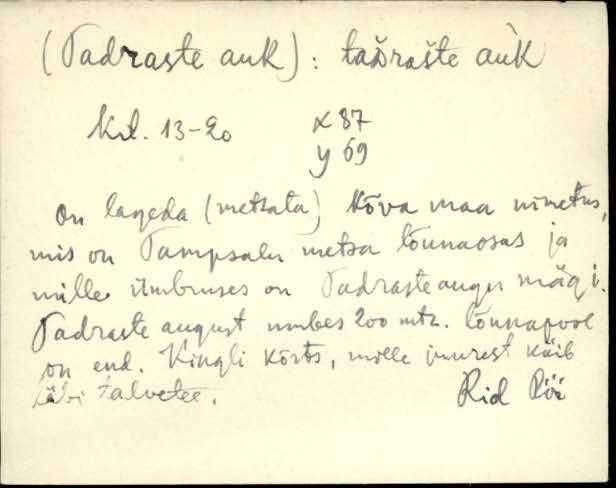 (Tadraste auk): taᴅraśte aùk
Krl. 13-20 x 87
y 69
On lageda (metsata) kõva maa nimetus,
mis on Tampsalu metsa lõunaosas ja
mille ümbruses on Tadrasteaugu mägi.
Tadraste august umbes 200 mtr. lõunapool
on end. Kingli kõrts, mille juurest käib
läbi talvetee. Rid Röä